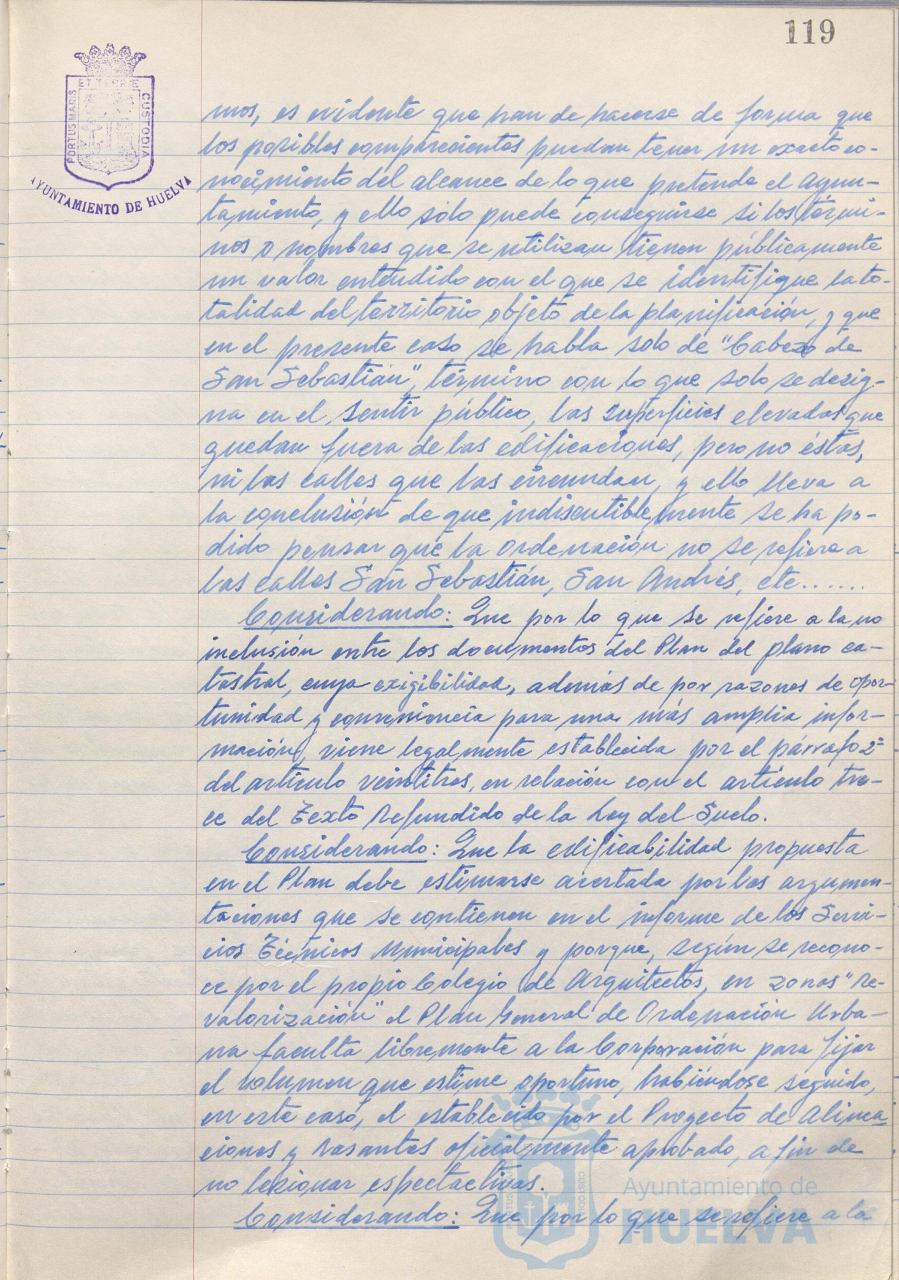 119
PORTUS MARIS
CUSTODIA
AYUNTAMIENTO DE HUELVA
mos, es evidente que han de hacerse de forma que
los posibles comparecientes puedan tener un exacto co-
nocimiento del alcance de lo que pretende el Ayun-
tamiento, y ello sólo puede conseguirse si los térmi-
nos o nombres que se utilizan tienen públicamente
un valor entendido con el que se identifique la to-
talidad del territorio objeto de la planificación, y que
en el presente caso se habla solo de "Cabezo de
San Sebastián", término con lo que solo se desig-
na en el sentir público, las superficies elevadas que
quedan fuera de las edificaciones, pero no éstas,
ni las calles que las circundan, y ello lleva a
la conclusión de que indiscutiblemente se ha po-
dido pensar que la ordenación no se refiere a
las calles San Sebastián, San Andrés, etc.......
Considerando: Que por lo que se refiere a la no
inclusión entre los documentos del Plan del plano ca-
tastral, cuya exigibilidad, además de por razones de opor-
tunidad y conveniencia para una más amplia infor-
mación, viene legalmente establecida por el párrafo 2º
del artículo veintitres, en relación con el artículo tre-
ce del Texto Refundido de la Ley del Suelo.
Considerando: Que la edificabilidad propuesta
en el Plan debe estimarse acertada por las argumen-
taciones que se contienen en el informe de los Servi-
cios Técnicos Municipales y porque, según se recono-
ce por el propio Colegio de Arquitectos, en zonas "Re-
valorización" el Plan General de Ordenación Urba-
na faculta libremente a la Corporación para fijar
el volumen que estime oportuno, habiéndose seguido,
en este caso, el establecido por el Proyecto de Alinea-
ciones y Rasantes oficialmente aprobado, a fin de
no lesionar espectactivas.
Considerando: Que por lo que se refiere a la
Ayuntamiento de
HUELVA